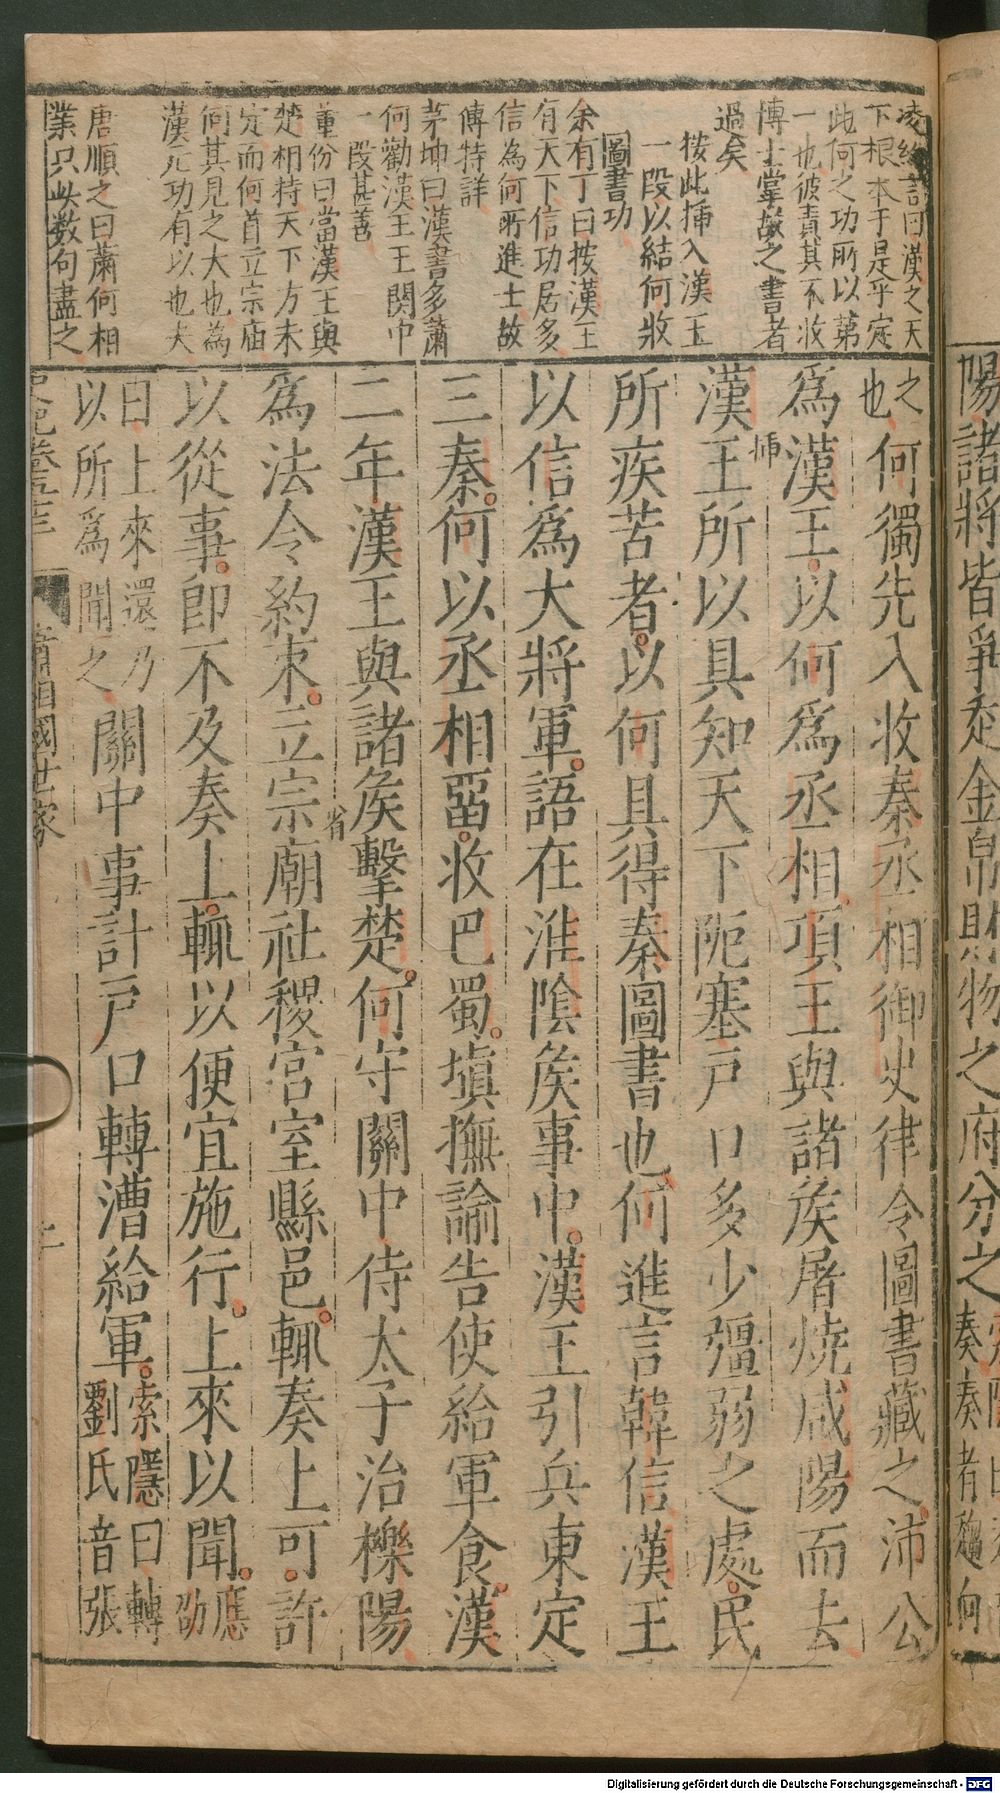 陽諸將皆爭走金帛財物之府分之
奏奏者趨向
凌約言曰漢之天
下根本于是乎定
此何之功所以第
一也彼責其不收
博士掌故之書者
過矣
按此揷入漢王
一段以結何收
圖書功
余有丁曰按漢王
有天下信功居多
信為何所進士故
傳特詳
茅坤曰漢書多蕭
何勸漢王王関中
一段甚善
董份曰當漢王與
楚相持天下方未
定而何首立宗庙
何其見之大也為
漢元功有以也夫
唐順之曰蕭何相
業只此数句盡之
之
也
何獨先入收秦丞相御史律令圖書藏之沛公
為漢王以何為丞相項王與諸矦屠燒咸陽而去
漢王所以具知天下阨塞戸口多少彊弱之處民
所疾苦者以何具得秦圖書也何進言韓信漢王
以信爲大將軍語在淮陰矦事中漢王引兵東定
三秦何以丞相畱收巴蜀塡撫諭告使給軍食漢
二年漢王與諸矦擊楚何守關中侍太子治櫟陽
省
為法令約束立宗廟社稷宮室縣邑輒奏上可許
以從事即不及奏上輒以便宜施行上來以聞
應
劭
曰上來還乃
以所爲聞之
關中事計戸口轉漕給軍
索隱曰轉
劉氏音張
史記卷五十三
蕭相國世家
Digitalisierung gefördert durch die Deutsche Forschungsgemeinschaft - DFG